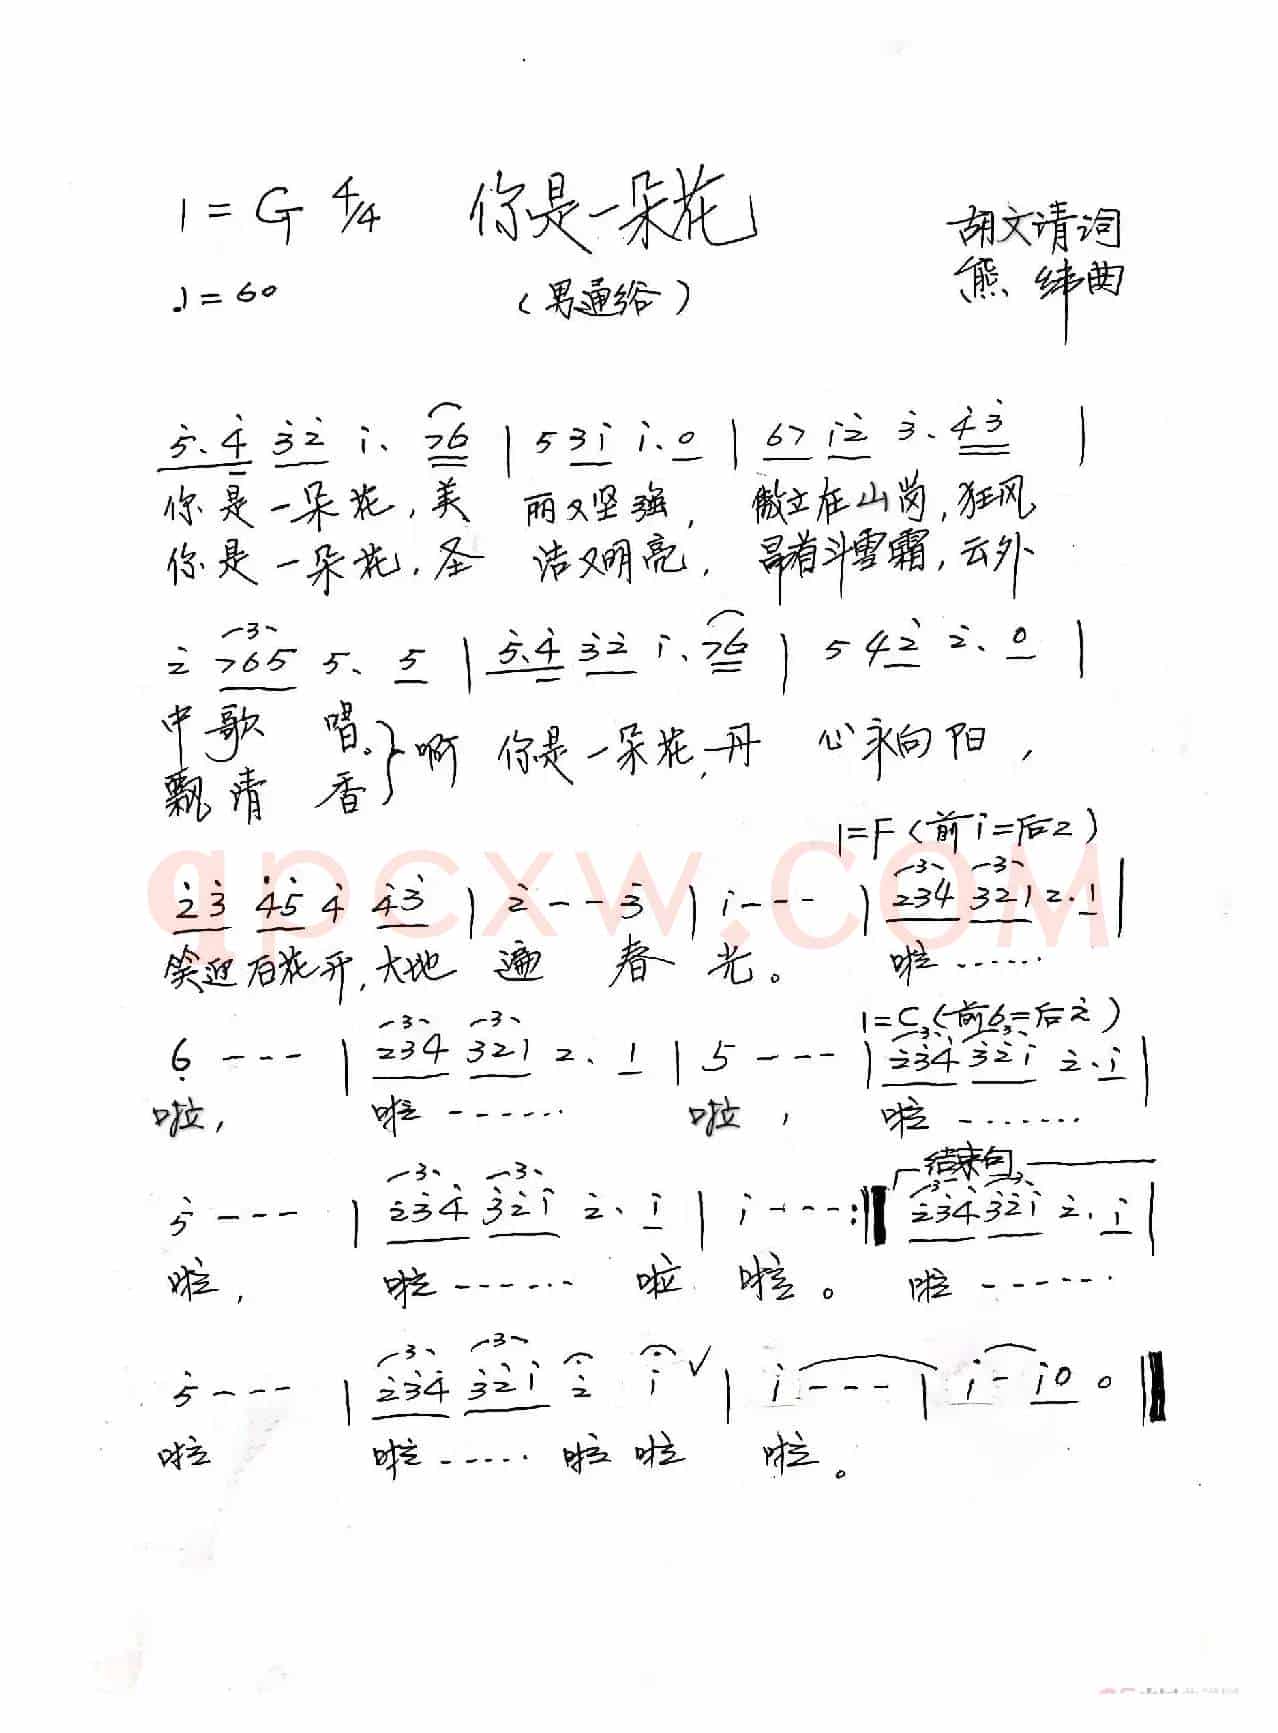 1=G 4/4 你是一朵花 胡文请词
♩=60 （男通俗） 熊 纬曲
5̇.4̇ 3̇2̇ 1̇. 76 | 5 31̇ 1̇.0 | 67 1̇2̇ 3̇. 4̇3̇ |
你是一朵花，美 丽又坚强， 傲立在山岗，狂风
你是一朵花，圣 洁又明亮， 昂着斗雪霜，云外
2̇ 765 5. 5 | 5̇.4̇ 3̇2̇ 1̇. 76 | 5 42̇ 2̇. 0 |
中歌 唱。}啊 你是一朵花，丹 心永向阳，
飘清 香
1=F（前1̇=后2）
2̇3̇ 4̇5̇ 4̇ 4̇3̇ | 2̇ - - 3̇ | 1̇ - - - | 234 321 2. 1 |
笑迎百花开，大地 遍 春 光。 啦 ……
1=C（前6=后2̇）
6̣ - - - | 234 321 2. 1 | 5 - - - | 2̇3̇4̇ 3̇2̇1̇ 2̇. 1̇ |
啦， 啦 …… 啦， 啦 ……
结束句
5̇ - - - | 2̇3̇4̇ 3̇2̇1̇ 2̇. 1̇ | 1̇ - - - :‖ 2̇3̇4̇ 3̇2̇1̇ 2̇. 1̇ |
啦， 啦 …… 啦 啦。 啦 ……
5̇ - - - | 2̇3̇4̇ 3̇2̇1̇ 2̇ 1̇ ∨ | 1̇ - - - | 1̇ - 1̇0 0 ‖
啦 啦 …… 啦 啦 啦。
qpcxw.COM